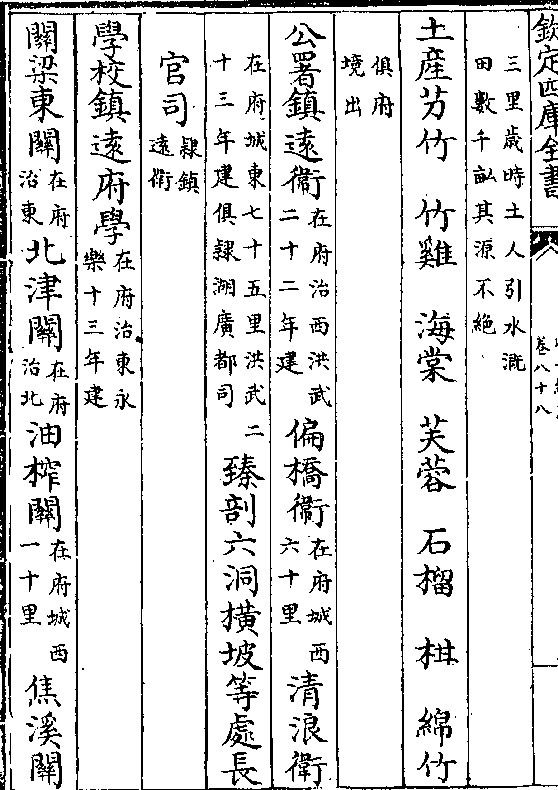 欽定四庫全書 卷八十八
三里歲時土人引水溉
田數千畝其源不絕
土產芀竹 竹雞 海棠 芙蓉 石榴 柑 綿竹
俱府
境出
公署鎮遠衛在府治西洪武二十二年建 偏橋衛在府城西六十里 清浪衛
在府城東七十五里洪武二十三年建俱隸湖廣都司 臻剖六洞橫坡等處長
官司隸鎮遠衛
學校鎮遠府學在府治東永樂十三年建
關梁東關在府治東 北津關在府治北 油榨關在府城西一十里 焦溪關